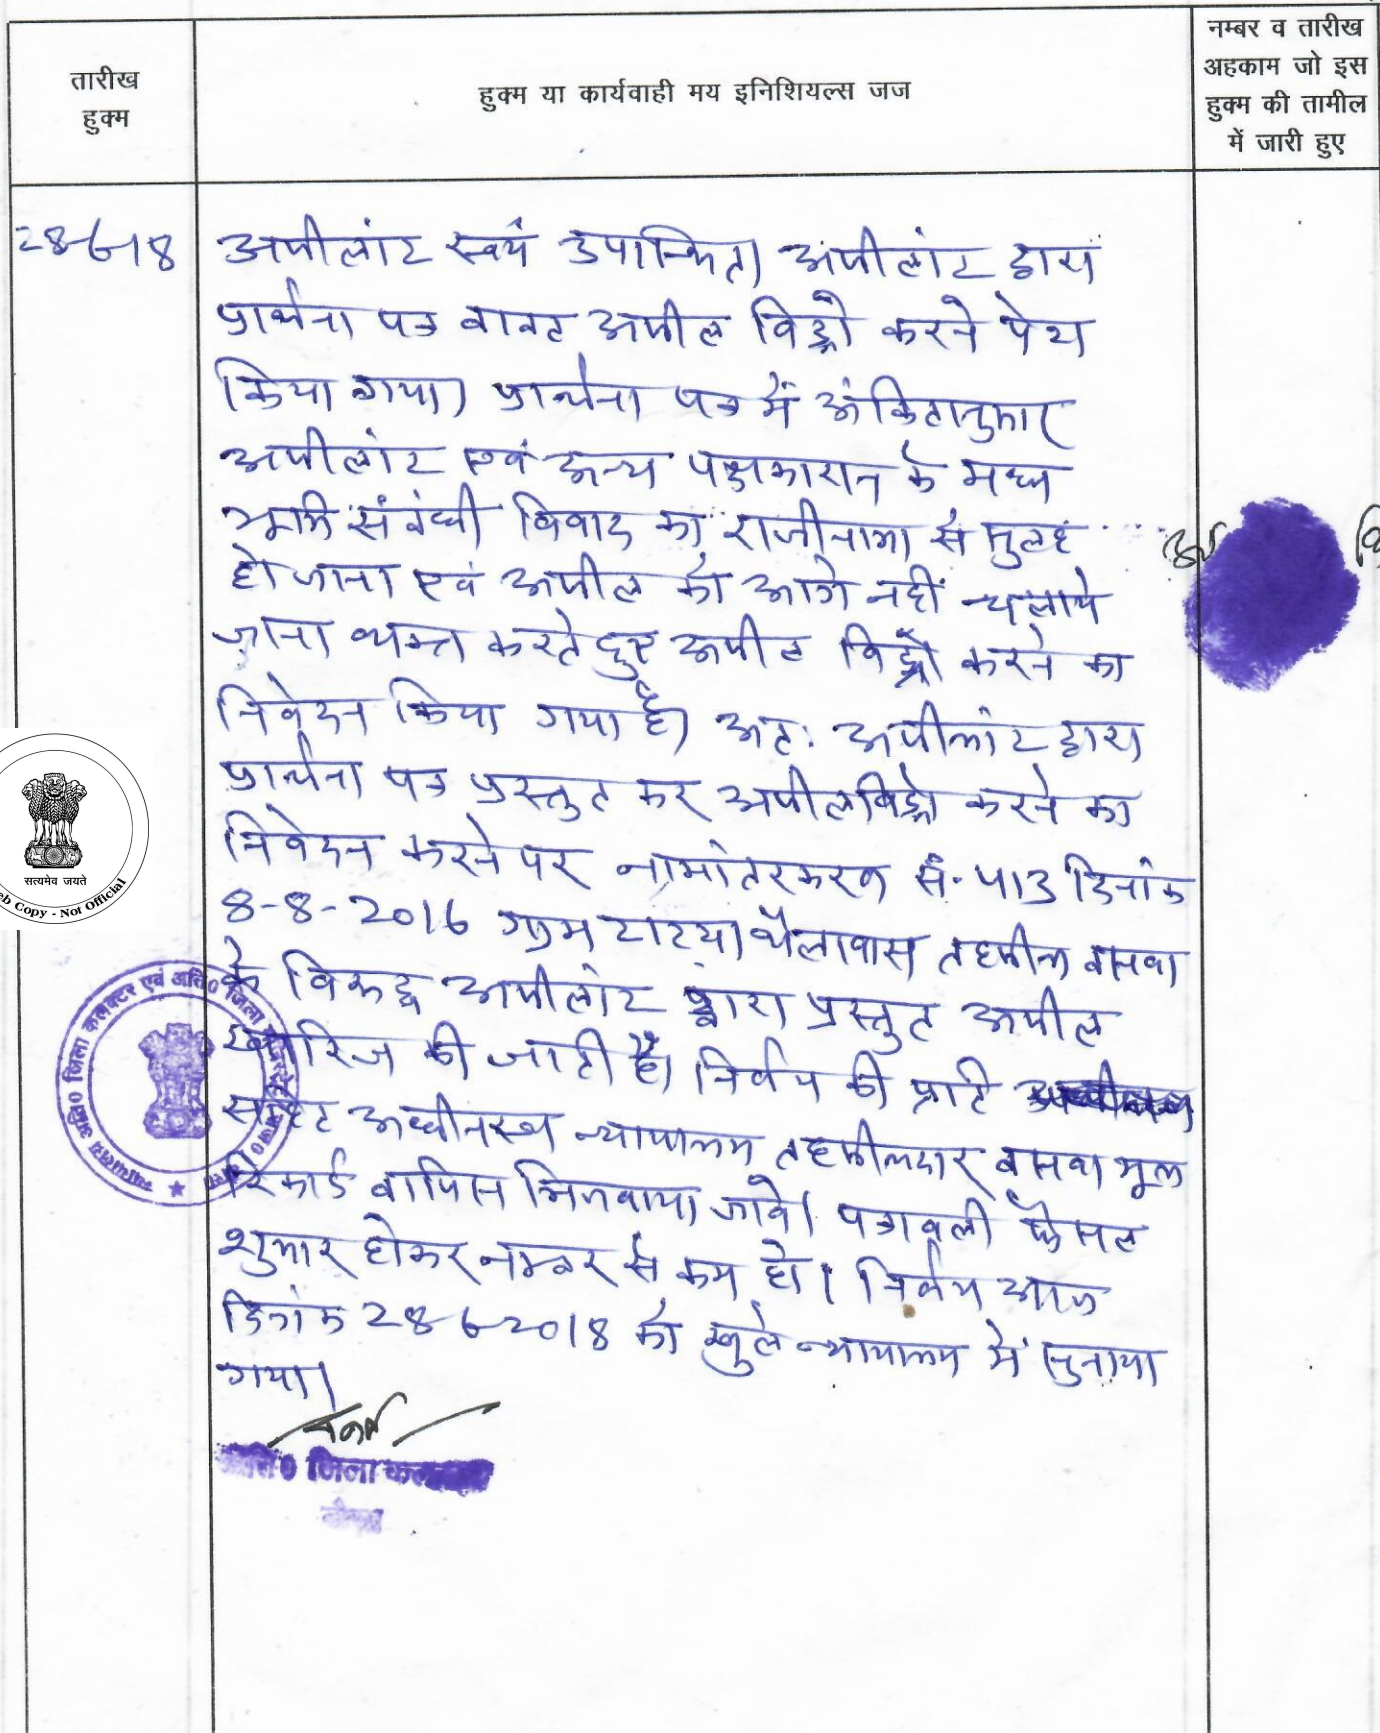 तारीख
हुक्म
हुक्म या कार्यवाही मय इनिशियल्स जज
नम्बर व तारीख
अहकाम जो इस
हुक्म की तामील
में जारी हुए
28-6-18
अपीलांट स्वयं उपस्थित। अपीलांट द्वारा
प्रार्थना पत्र बाबत अपील विड्रो करने पेश
किया गया। प्रार्थना पत्र में अंकितानुसार
अपीलांट एवं अन्य पक्षकारान के मध्य
भूमि संबंधी विवाद का राजीनामा से सुलह
हो जाना एवं अपील को आगे नहीं चलाये
जाना व्यक्त करते हुए अपील विड्रो करने का
निवेदन किया गया है। अतः अपीलांट द्वारा
प्रार्थना पत्र प्रस्तुत कर अपील विड्रो करने का
निवेदन करने पर नामांतरकरण सं. दिनांक
8-8-2016 ग्राम तहसील बसवा
के विरूद्ध अपीलांट द्वारा प्रस्तुत अपील
खारिज की जाती है। निर्णय की प्रति
अधीनस्थ न्यायालय तहसीलदार बसवा मूल
रिकार्ड वापिस भिजवाया जावे। पत्रावली फैसल
शुमार होकर नम्बर से कम हो। निर्णय आज
दिनांक 28-6-2018 को खुले न्यायालय में सुनाया
गया।
जिला कलक्टर
सत्यमेव जयते
Web Copy - Not Official
न्यायालय अति० जिला कलक्टर एवं अति० जिला